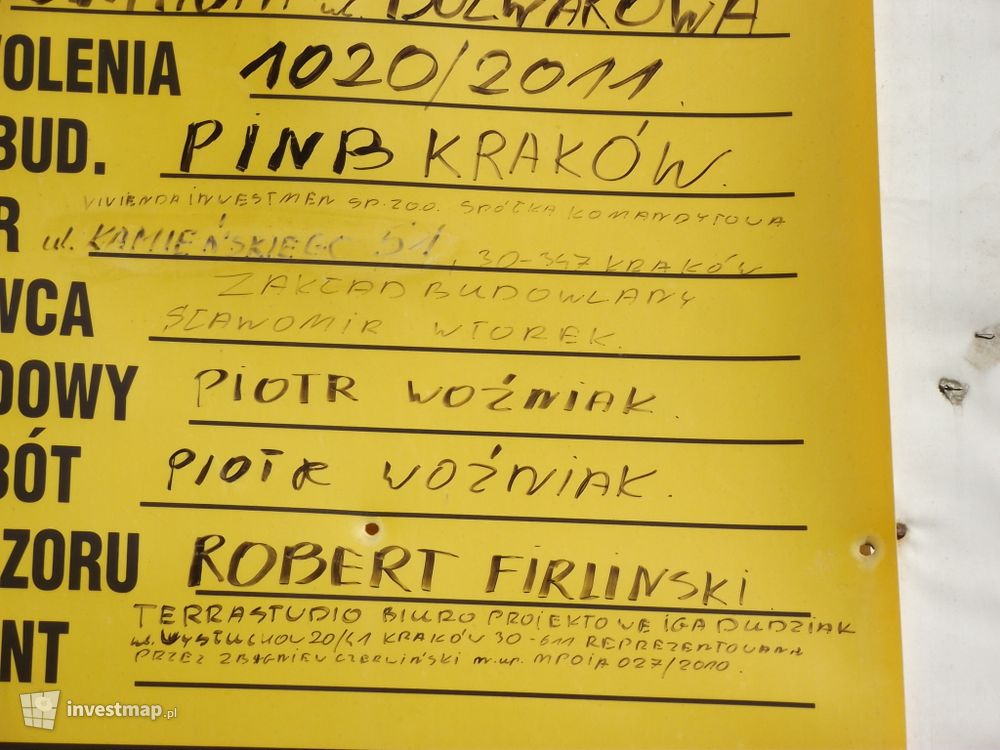 ul. BULWAROWA
WOLENIA 1020/2011.
BUD. PINB KRAKÓW.
VIVIENDA INVESTMEN SP. ZOO. SPÓŁKA KOMANDYTOWA
R ul. KAMIEŃSKIEGO 51, 30-347 KRAKÓW
WCA ZAKŁAD BUDOWLANY
SŁAWOMIR WTOREK.
DOWY PIOTR WOŹNIAK.
BÓT PIOTR WOŹNIAK.
ZORU ROBERT FIRLINSKI
TERRASTUDIO BIURO PROJEKTOWE IGA DUDZIAK
NT ul. WYSŁUCHOW 20/41 KRAKÓW 30-611 REPREZENTOWANA
PRZEZ ZBIGNIEW CZERLIŃSKI n.up. MPOIA 027/2010.
investmap.pl